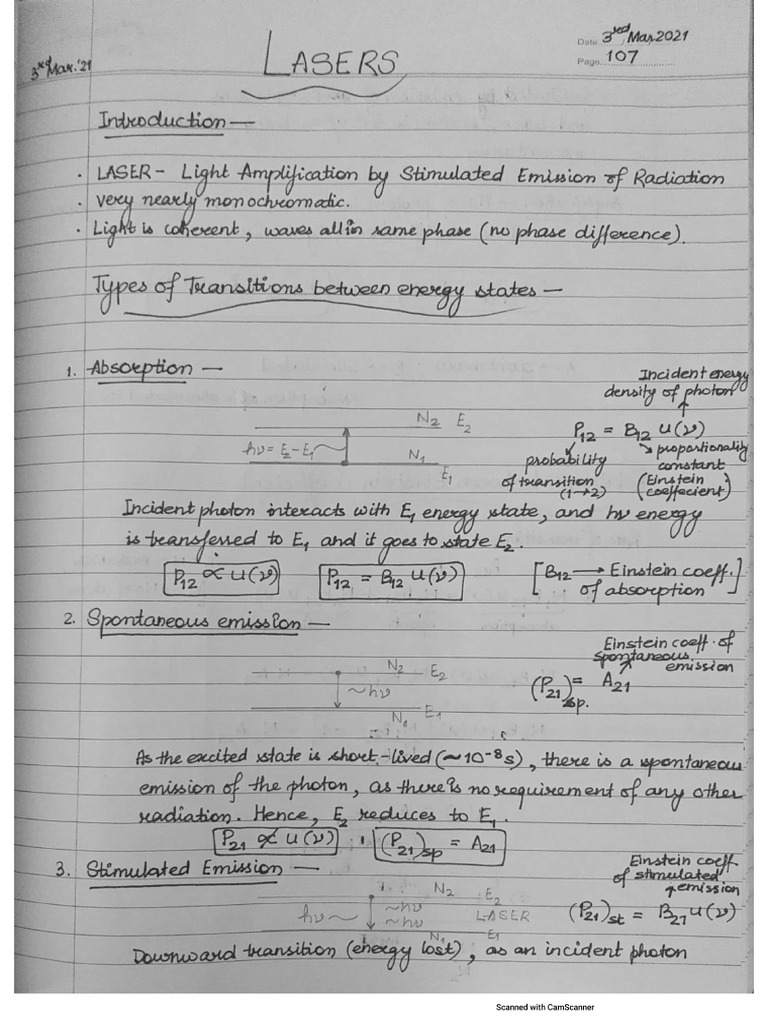 3rd Mar.'21
LASERS
Date 3rd Mar 2021
Page 107
Introduction —
. LASER – Light Amplification by Stimulated Emission of Radiation
. very nearly monochromatic.
. Light is coherent, waves all in same phase (no phase difference).
Types of Transitions between energy states —
1. Absorption —
Incident energy
density of photon
N2 E2
hν = E2 – E1
N1
E1
P12 = B12 u(ν)
probability
of transition
(1→2)
proportionality
constant
(Einstein
coeffecient)
Incident photon interacts with E1 energy state, and hν energy
is transferred to E1 and it goes to state E2.
P12 ∝ u(ν) P12 = B12 u(ν) [B12 → Einstein coeff.
of absorption]
2. Spontaneous emission —
Einstein coeff. of
spontaneous
emission
N2 E2
~hν
N1 E1
(P21)sp. = A21
As the excited state is short-lived (~10⁻⁸s), there is a spontaneous
emission of the photon, as there is no requirement of any other
radiation. Hence, E2 reduces to E1.
P21 ∝̸ u(ν) , (P21)sp = A21
3. Stimulated Emission —
Einstein coeff
of stimulated
emission
N2 E2
hν ~ ~hν
~hν LASER
N1 E1
(P21)st = B21 u(ν)
Downward transition (energy lost), as an incident photon
Scanned with CamScanner